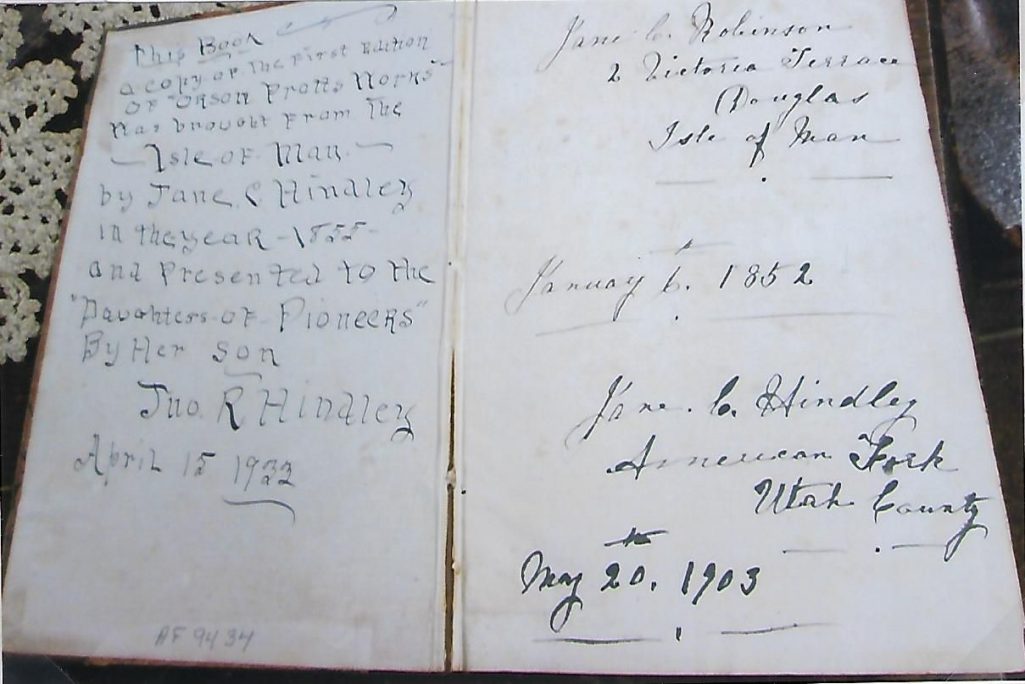 This Book
a copy of the First Edition
OF "ORSON Pratts Works"
Was brought From The
— Isle OF Man. —
by Jane C Hindley
in the year - 1855 -
and Presented to the
"Daughters OF Pioneers"
By Her Son
Jno. R Hindley
April 15 1933
AF 9434
Jane C. Robinson
2 Victoria Terrace
Douglas
Isle of Man
January 6. 1852
Jane. C. Hindley
American Fork
Utah County
May 20. th 1903